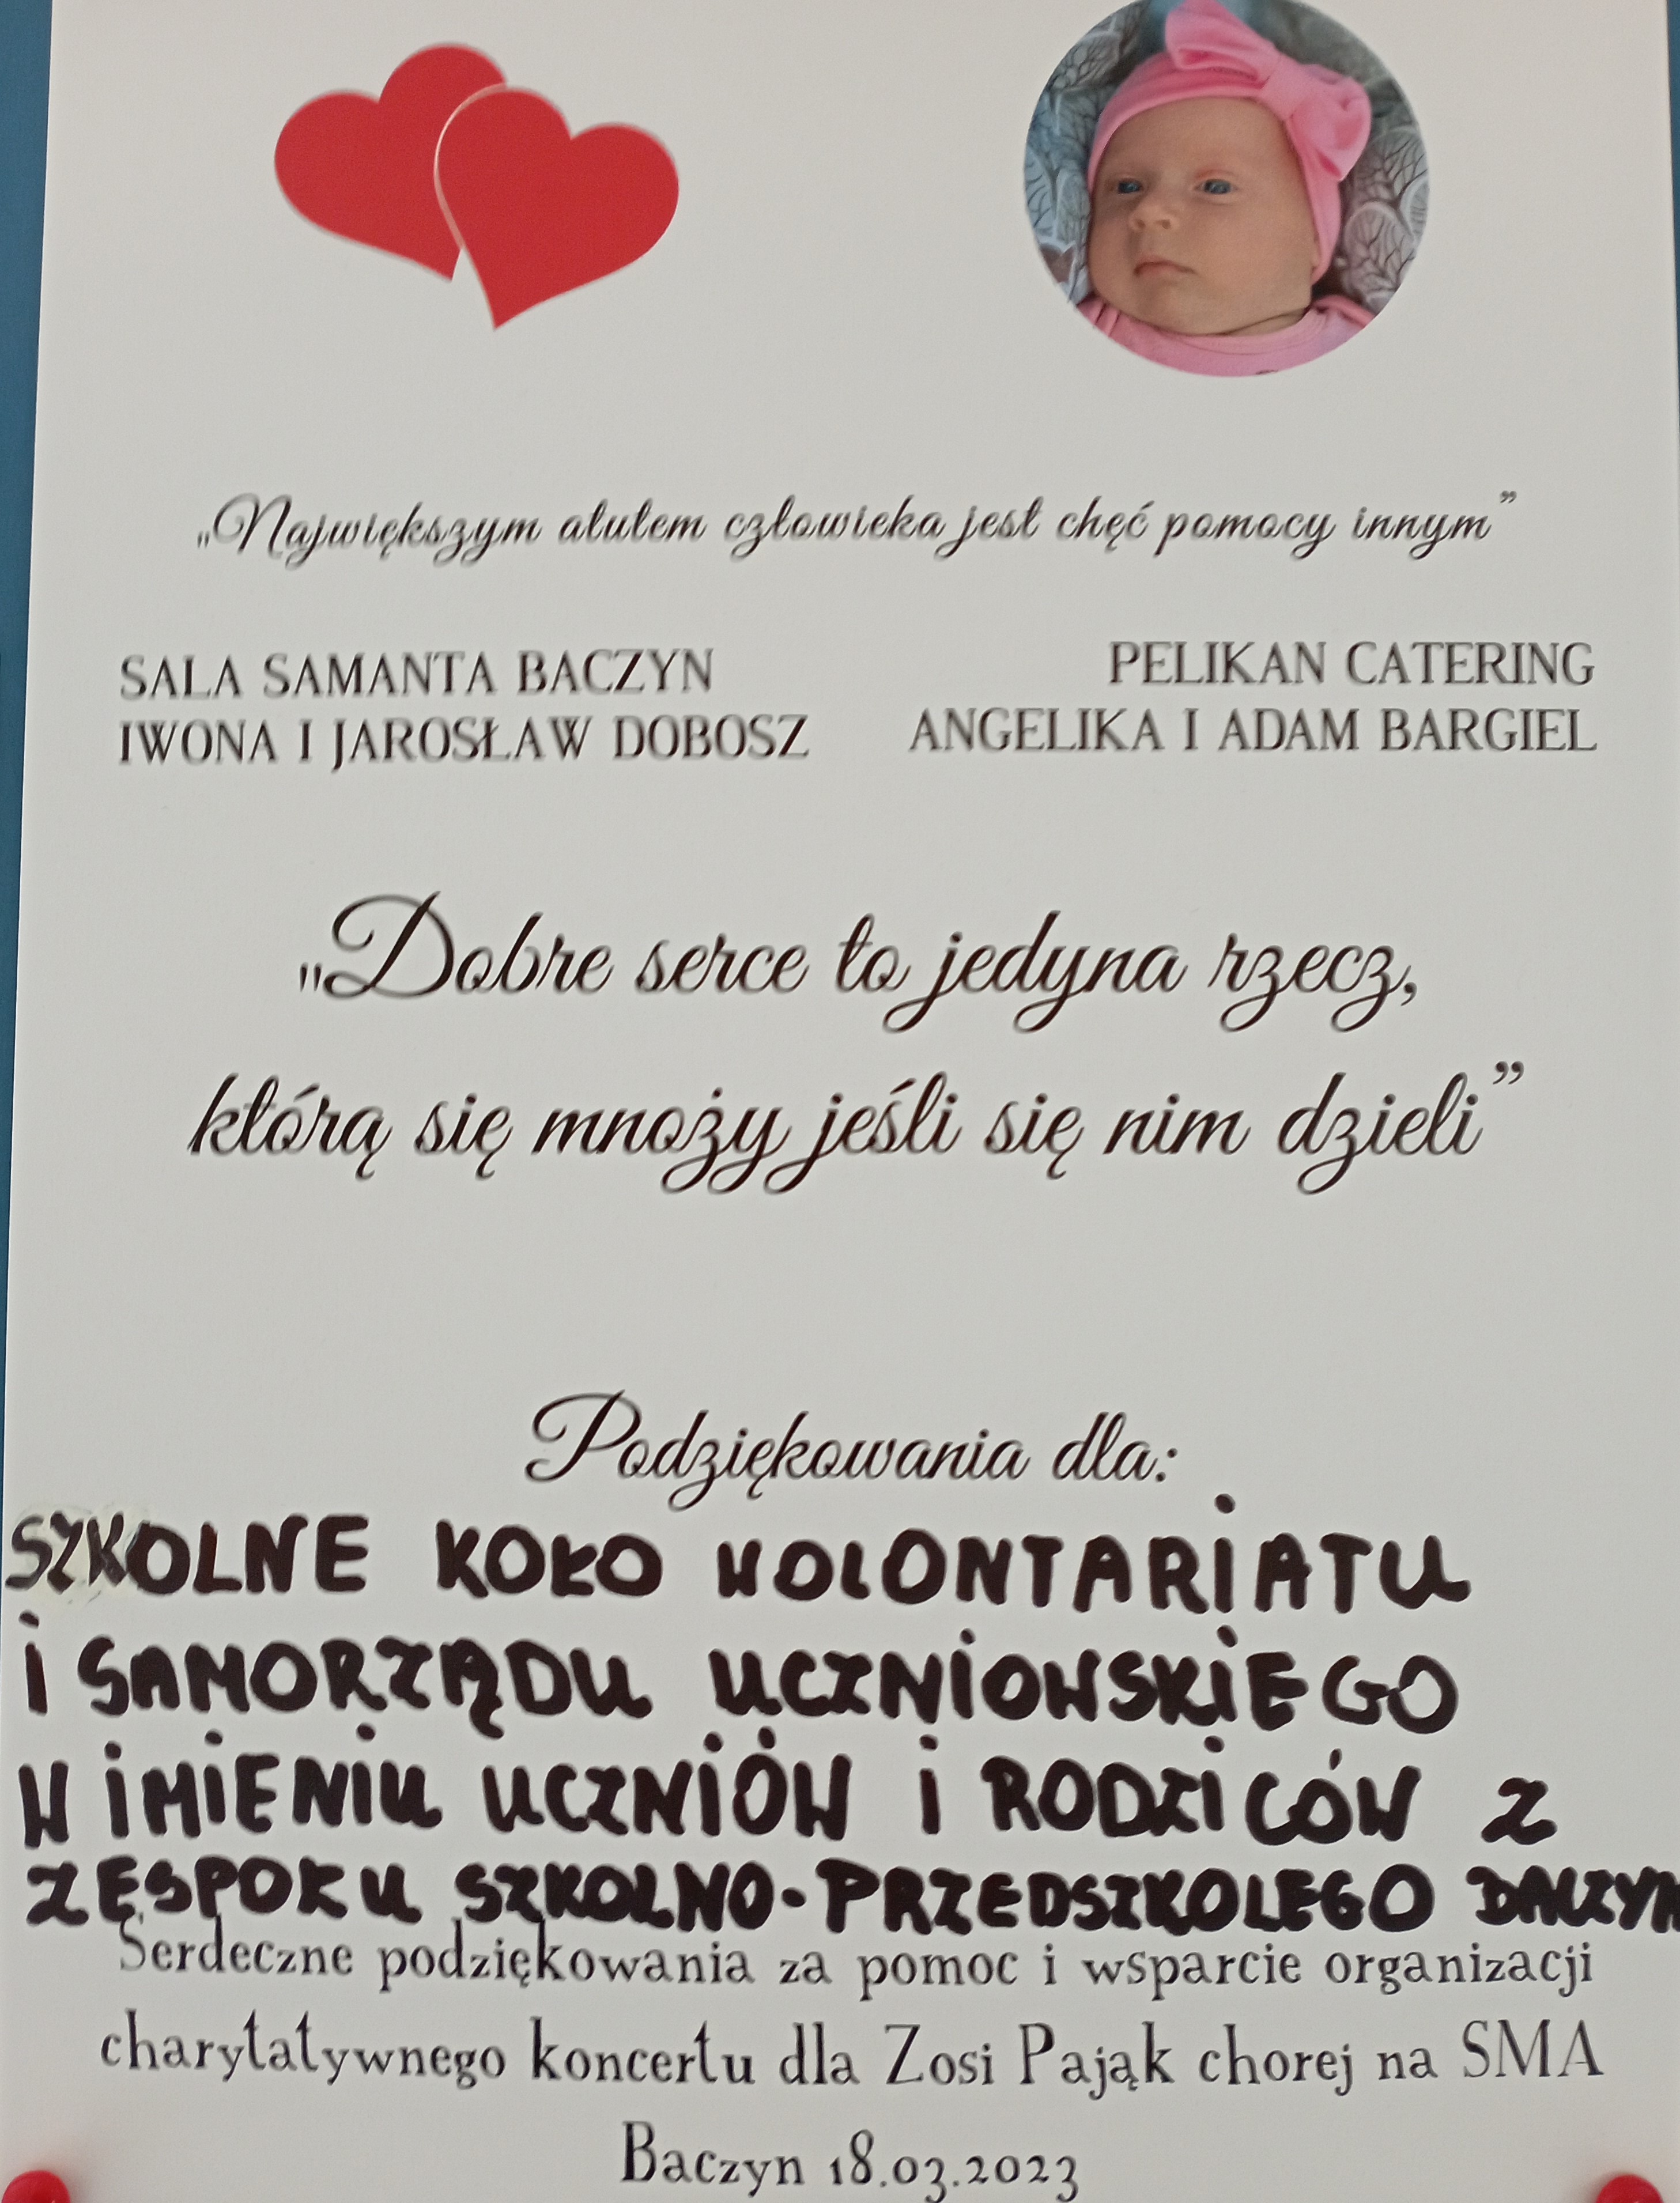 „Największym atutem człowieka jest chęć pomocy innym”
SALA SAMANTA BACZYN
IWONA I JAROSŁAW DOBOSZ
PELIKAN CATERING
ANGELIKA I ADAM BARGIEL
„Dobre serce to jedyna rzecz,
którą się mnoży jeśli się nim dzieli”
Podziękowania dla:
SZKOLNE KOŁO WOLONTARIATU
i SAMORZĄDU UCZNiOWSKiEGO
W iMiENiU UCZNiÓW i RODZiCÓW Z
ZESPOŁU SZKOLNO-PRZEDSZKOLEGO BACZYN
Serdeczne podziękowania za pomoc i wsparcie organizacji
charytatywnego koncertu dla Zosi Pająk chorej na SMA
Baczyn 18.03.2023